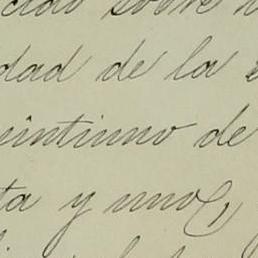 sobre
dad de la
eintiuno de
ta y uno